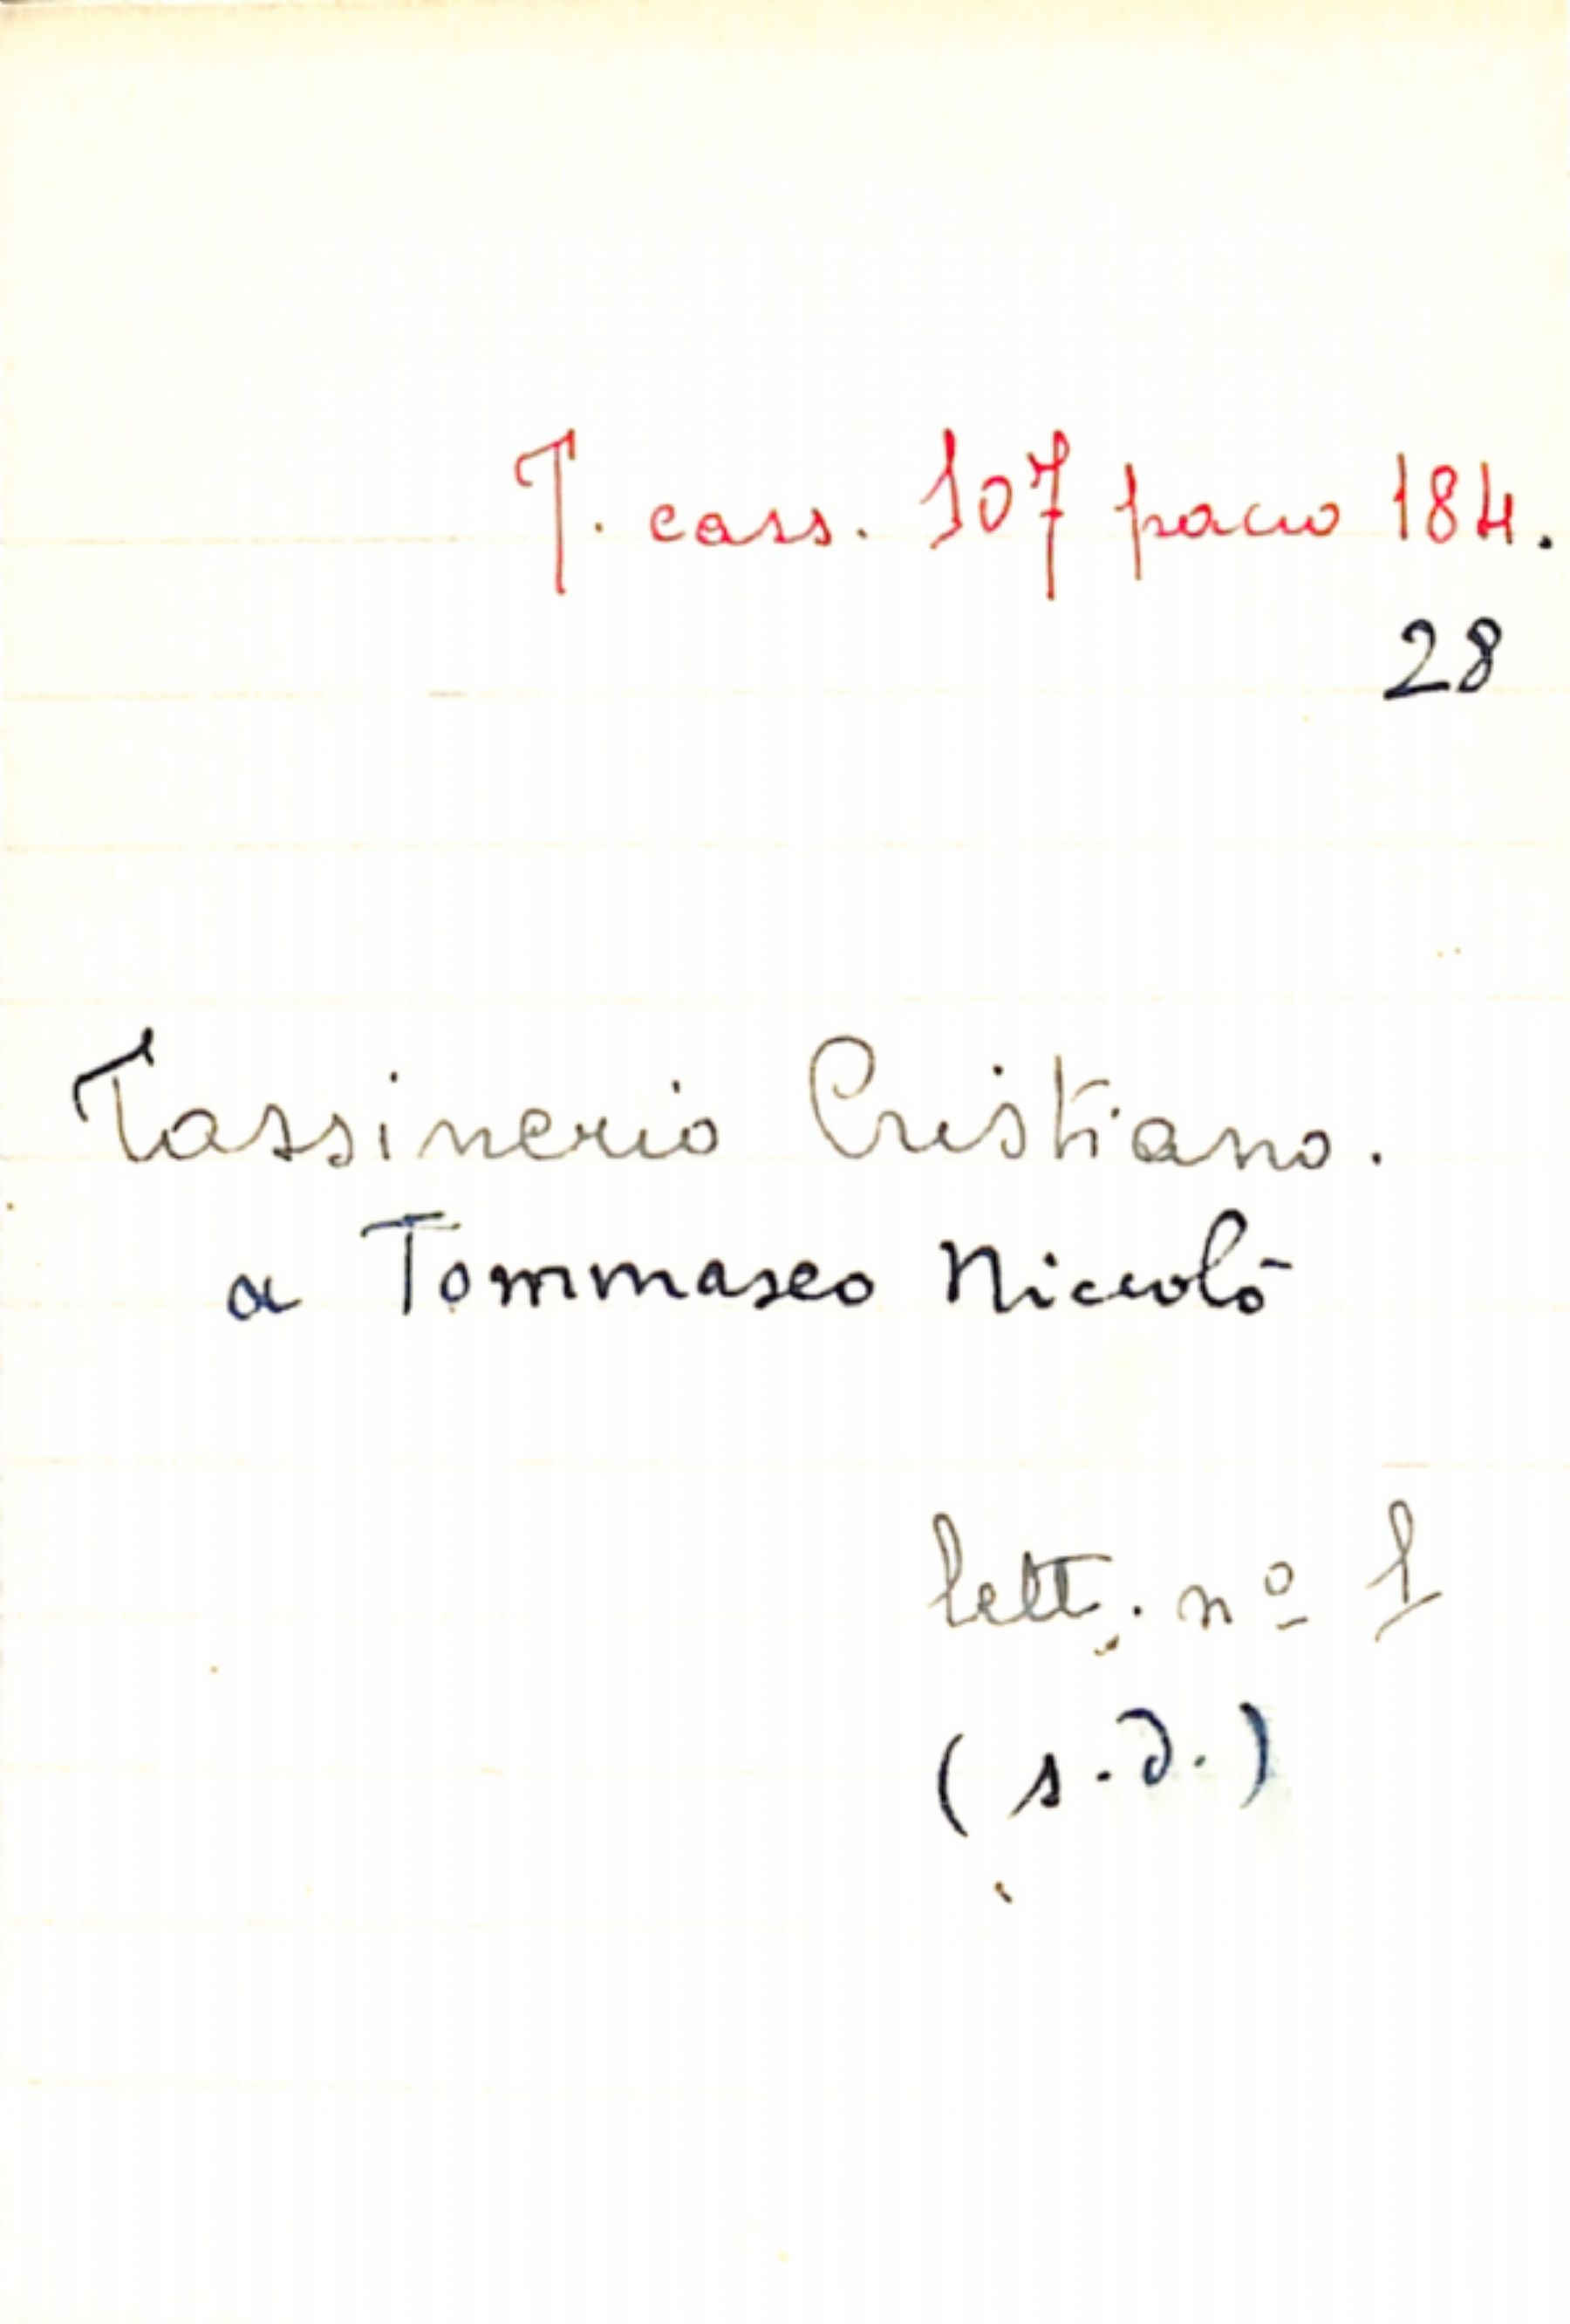 T. cass. 107 pacco 184.
28
Tassinerio Cristiano.
a Tommaseo Niccolò
lett. nº 1
(s.d.)